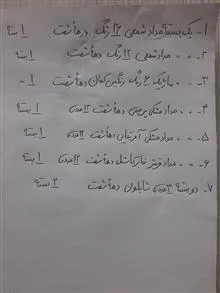 ۱- یک بسته مداد شمعی ۱۲ رنگ دهاشت ۱ بسته
۲- ۰ ۰ مداد شمعی ۱۲ رنگ دهاشت ۱ بسته
۳- ۰ ۰ ماژیک ۶ رنگ رنگین کمان دهاشت ۱ ۰۰
۴- ۰ ۰ مداد مشکی پرچمی دهاشت ۱۲ عددی ۱ بسته
۵- ۰ ۰ مداد مشکی آمریکایی دهاشت ۱۲ عددی ۱ بسته
۶- ۰ ۰ مداد قرمز فابرکاستل دهاشت ۱۲ عددی ۱ بسته
۷- دو بسته ۳ عددی شابلون دهاشت ۲ بسته